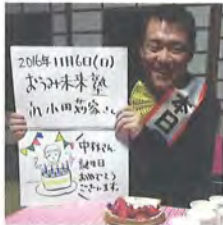 2016年11月6日(日)
おうみ未来塾
in 小田苅家さん
中村さん
誕生日
おめでとう
ございます。
本日